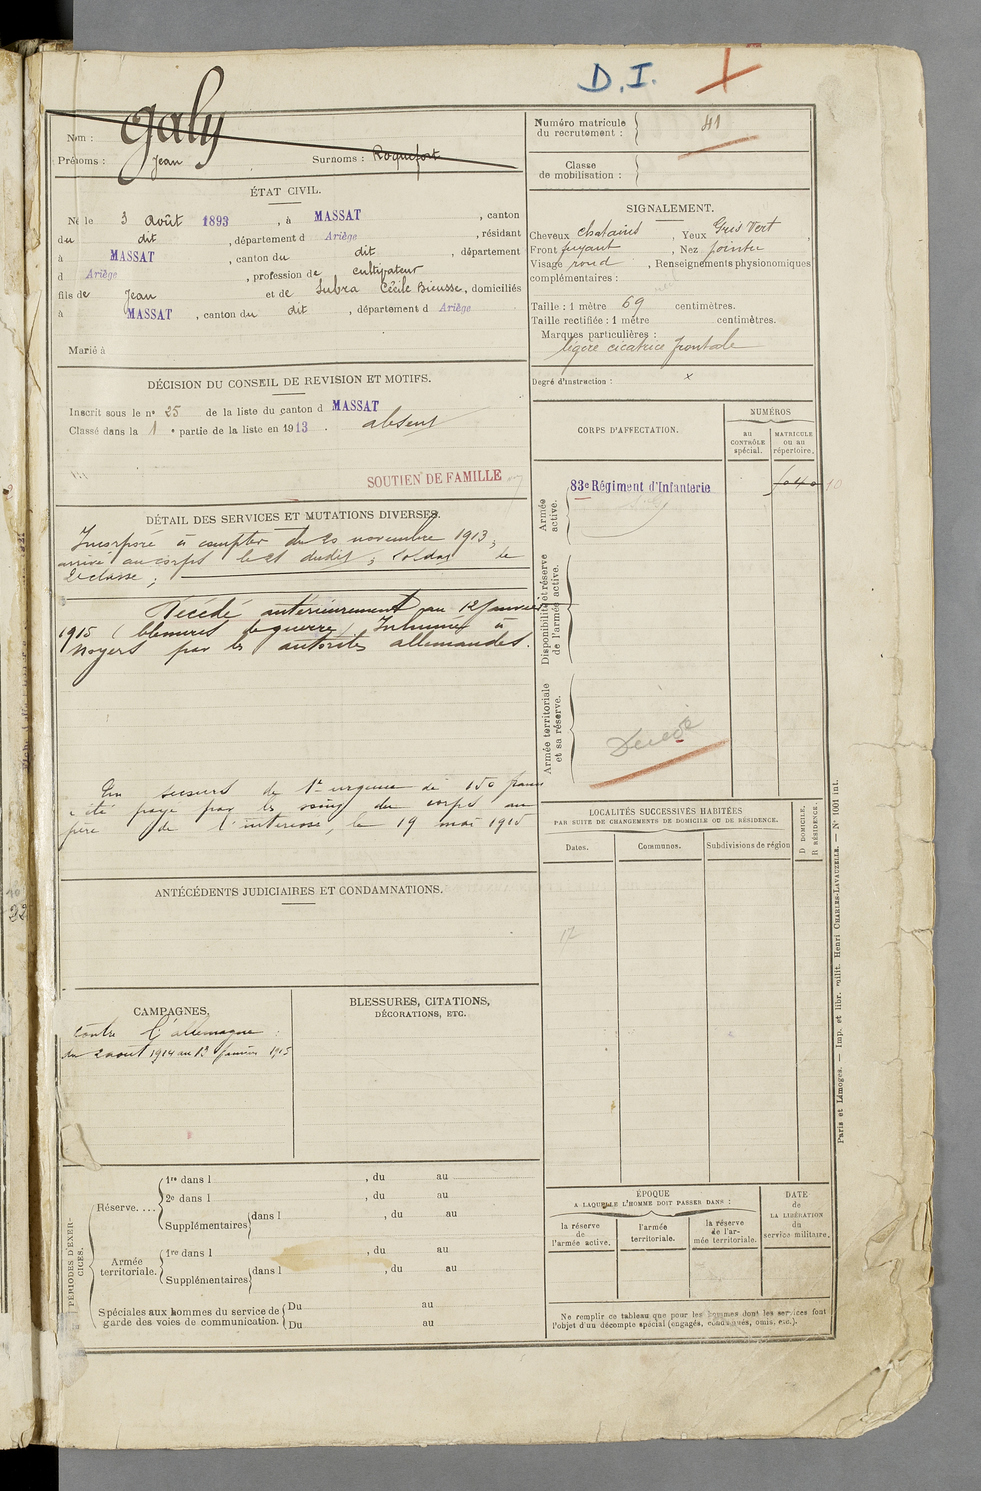 D.I.
Nom : Galy
Prénoms : Jean Surnoms : Roquefort
ÉTAT CIVIL.
Né le 3 Août 1893, à MASSAT, canton
du dit, département d Ariège, résidant
à MASSAT, canton du dit, département
d Ariège, profession de cultivateur
fils de Jean et de Subra Cécile Bieusse, domiciliés
à MASSAT, canton du dit, département d Ariège
Marié à
DÉCISION DU CONSEIL DE REVISION ET MOTIFS.
Inscrit sous le n° 25 de la liste du canton d MASSAT
Classé dans la 1e partie de la liste en 1913. absent
SOUTIEN DE FAMILLE
DÉTAIL DES SERVICES ET MUTATIONS DIVERSES.
Incorporé à compter du 20 novembre 1913,
arrivé au corps le 21 dudit, soldat de
2e classe;
Décédé antérieurement au 12 Janvier
1915 (blessures de guerre) Inhumé à
Noyers par les autorités allemandes.
Un secours de 1re urgence de 150 francs
a été payé par les soins du corps au
père de l'intéressé, le 19 mai 1915
ANTÉCÉDENTS JUDICIAIRES ET CONDAMNATIONS.
CAMPAGNES.
Contre l'allemagne :
du 2 août 1914 au 13 janvier 1915
BLESSURES, CITATIONS,
DÉCORATIONS, ETC.
PÉRIODES D'EXERCICES.
Réserve....
1re dans l , du au
2e dans l , du au
Supplémentaires dans l , du au
Armée territoriale.
1re dans l , du au
Supplémentaires dans l , du au
Spéciales aux hommes du service de garde des voies de communication.
Du au
Du au
Numéro matricule
du recrutement : 41
Classe
de mobilisation :
SIGNALEMENT.
Cheveux chatains, Yeux Gris Vert,
Front fuyant, Nez pointu
Visage rond, Renseignements physionomiques
complémentaires :
Taille : 1 mètre 69 centimètres.
Taille rectifiée : 1 mètre centimètres.
Marques particulières :
légère cicatrice frontale
Degré d'instruction : x
CORPS D'AFFECTATION.
NUMÉROS
au CONTRÔLE spécial.
MATRICULE ou au répertoire.
Armée active.
83e Régiment d'Infanterie
Disponibilité et réserve de l'armée active.
Armée territoriale et sa réserve.
Décédé
LOCALITÉS SUCCESSIVES HABITÉES
PAR SUITE DE CHANGEMENTS DE DOMICILE OU DE RÉSIDENCE.
Dates. Communes. Subdivisions de région
D DOMICILE.
R RÉSIDENCE.
ÉPOQUE
A LAQUELLE L'HOMME DOIT PASSER DANS :
la réserve de l'armée active.
l'armée territoriale.
la réserve de l'armée territoriale.
DATE de LA LIBÉRATION du service militaire.
Ne remplir ce tableau que pour les hommes dont les services font
l'objet d'un décompte spécial (engagés, condamnés, omis, etc.).
Paris et Limoges. — Imp. et libr. milit. Henri CHARLES-LAVAUZELLE. — N° 1001 int.